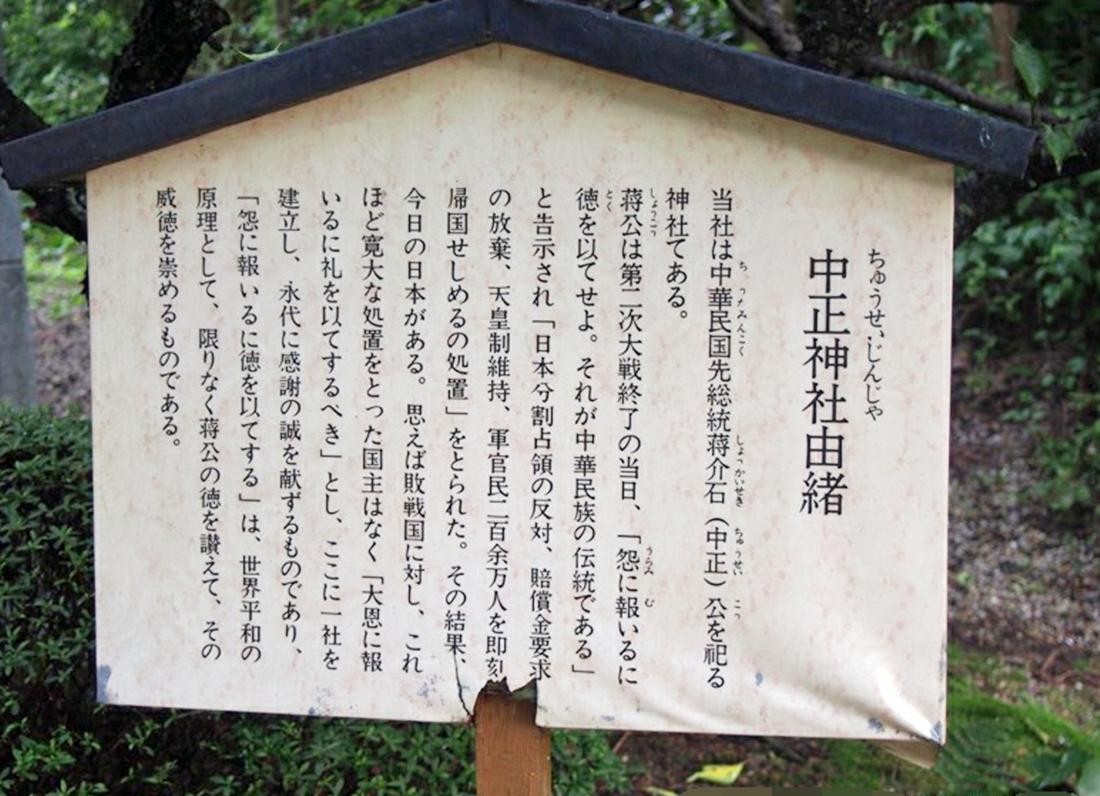 中正神社由緒
ちゅうせいじんじゃ
当社は中華民国先総統蒋介石（中正）公を祀る
神社てある。
蒋公は第二次大戦終了の当日、「怨に報いるに
徳を以てせよ。それが中華民族の伝統である」
と告示され「日本分割占領の反対、賠償金要求
の放棄、天皇制維持、軍官民二百余万人を即刻
帰国せしめるの処置」をとられた。その結果、
今日の日本がある。思えば敗戦国に対し、これ
ほど寛大な処置をとった国主はなく「大恩に報
いるに礼を以てするべき」とし、ここに一社を
建立し、永代に感謝の誠を献ずるものであり、
「怨に報いるに徳を以てする」は、世界平和の
原理として、限りなく蒋公の徳を讃えて、その
威徳を崇めるものである。